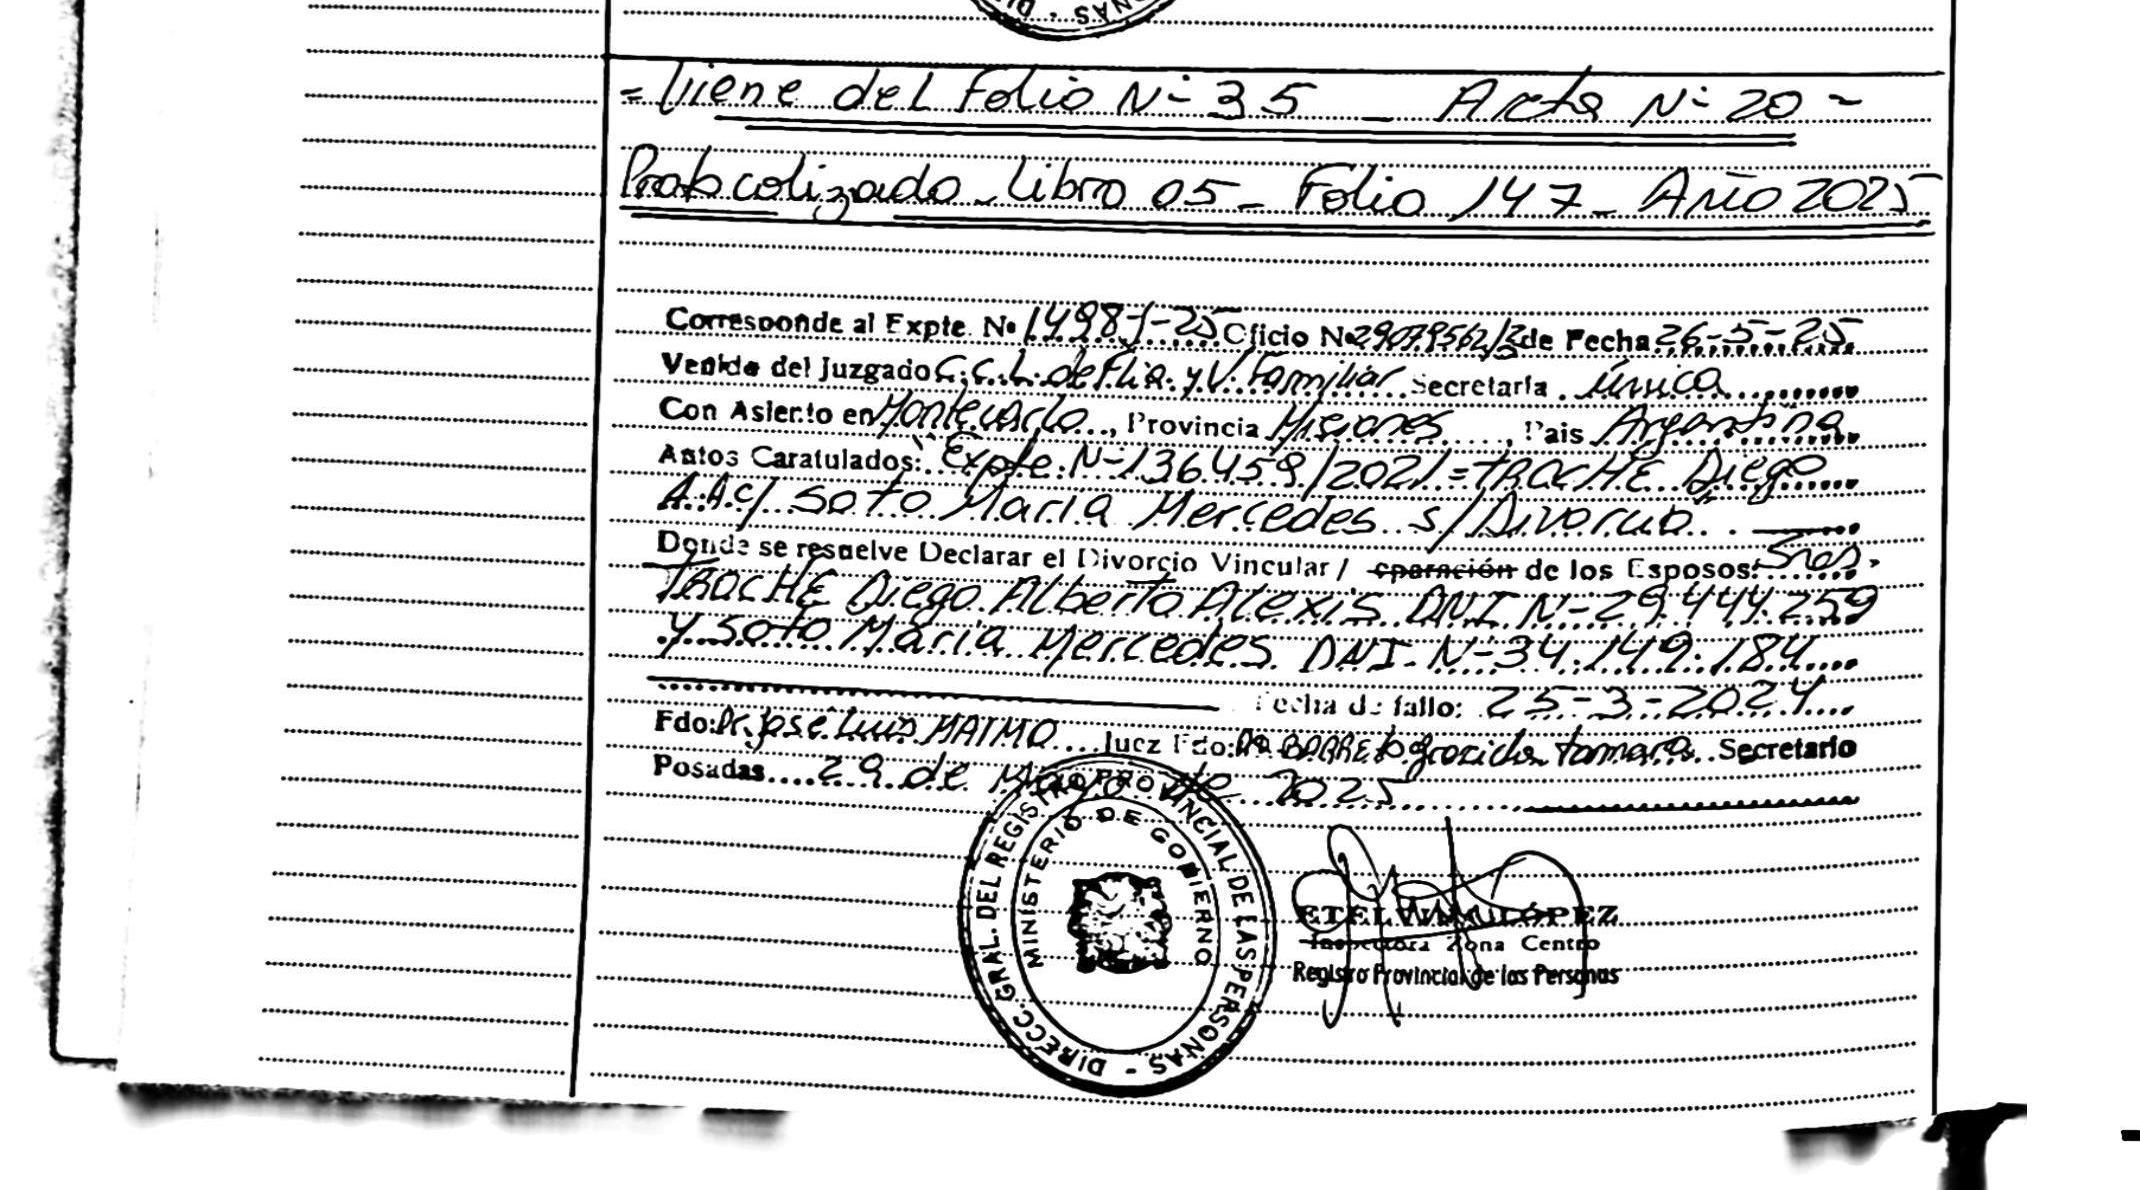 = Viene del Folio Nº 35 _ Acta Nº 20 -
Protocolizado - Libro 05 - Folio 147 - Año 2025
Corresponde al Expte. Nº 1498-J-25 Oficio Nº 29079562/3 de Fecha 26-5-25
Venido del Juzgado C.C.L. de Flia. y V. Familiar Secretaría Única
Con Asiento en Montecarlo, Provincia Misiones, Pais Argentina
Autos Caratulados: "Expte. Nº 136459/2021 = TROCHE Diego
A. A c/ Soto María Mercedes s/ Divorcio"
Donde se resuelve Declarar el Divorcio Vincular / eparación de los Esposos: Sres.
TROCHE Diego Alberto Alexis DNI Nº 29.444.259
y Soto María Mercedes DNI Nº 34.149.184
Fecha de fallo: 25-3-2024
Fdo: Dr. José Luis MAIMO Juez Fdo: Dra BARRETO Graciela Tamara Secretario
Posadas 29 de Mayo de 2025
DIRECC. GRAL. DEL REGISTRO PROVINCIAL DE LAS PERSONAS -
MINISTERIO DE GOBIERNO
ETELVINA LÓPEZ
Inspectora Zona Centro
Registro Provincial de las Personas